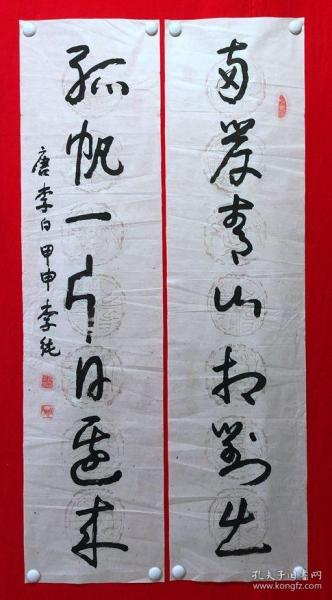 两岸青山相对出
孤帆一片日边来
唐李白甲申李纯
孔夫子旧书网
www.kongfz.com